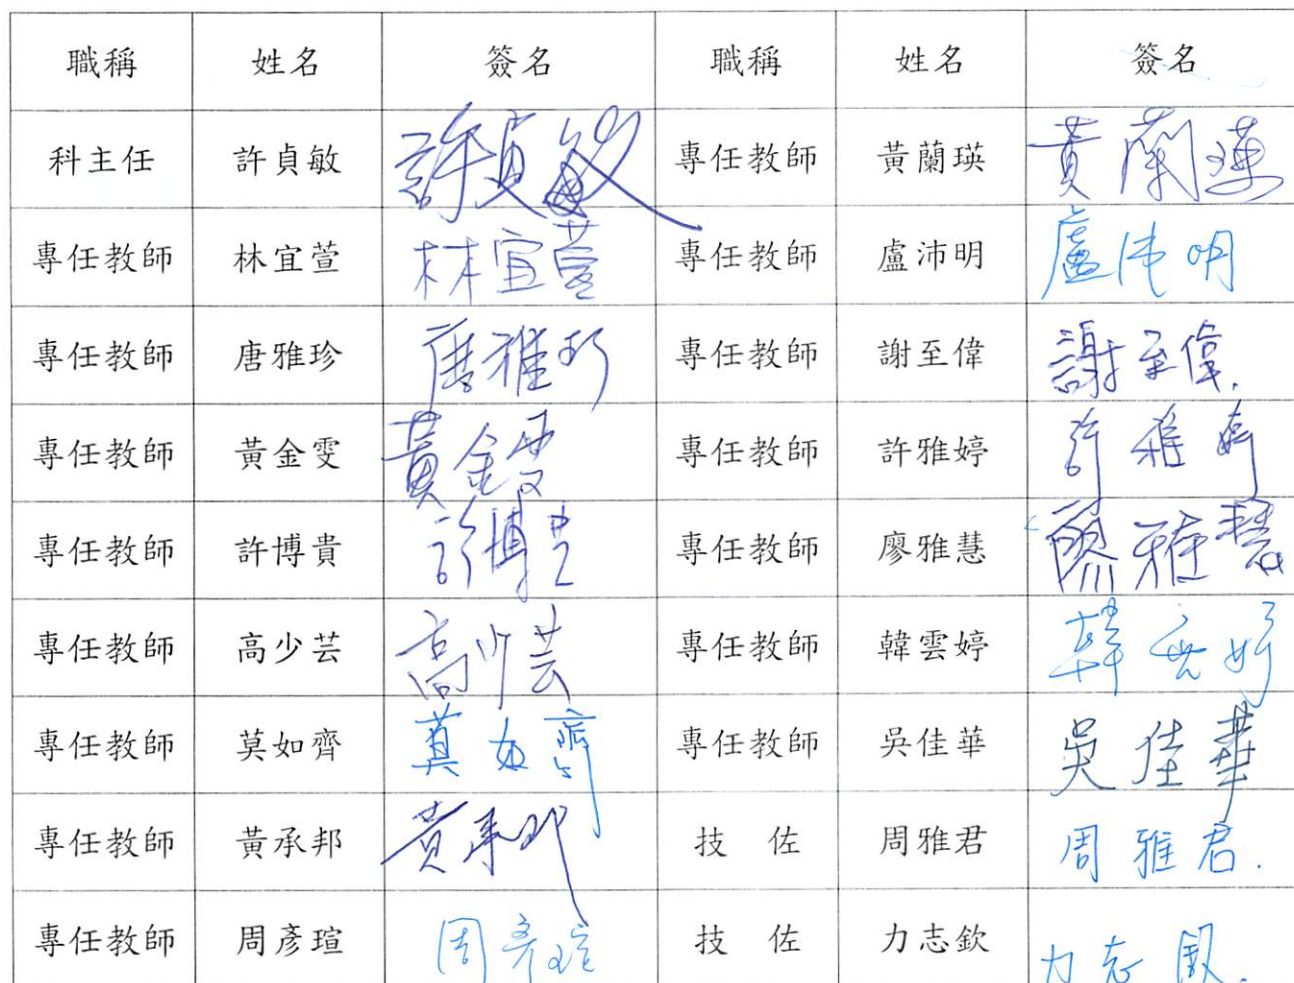 職稱 姓名 簽名 職稱 姓名 簽名
科主任 許貞敏 許貞敏 專任教師 黃蘭瑛 黃蘭瑛
專任教師 林宜萱 林宜萱 專任教師 盧沛明 盧沛明
專任教師 唐雅珍 唐雅珍 專任教師 謝至偉 謝至偉.
專任教師 黃金雯 黃金雯 專任教師 許雅婷 許雅婷
專任教師 許博貴 許博貴 專任教師 廖雅慧 廖雅慧
專任教師 高少芸 高少芸 專任教師 韓雲婷 韓雲婷
專任教師 莫如齊 莫如齊 專任教師 吳佳華 吳佳華
專任教師 黃承邦 黃承邦 技 佐 周雅君 周雅君.
專任教師 周彥瑄 周彥瑄 技 佐 力志欽 力志欽.